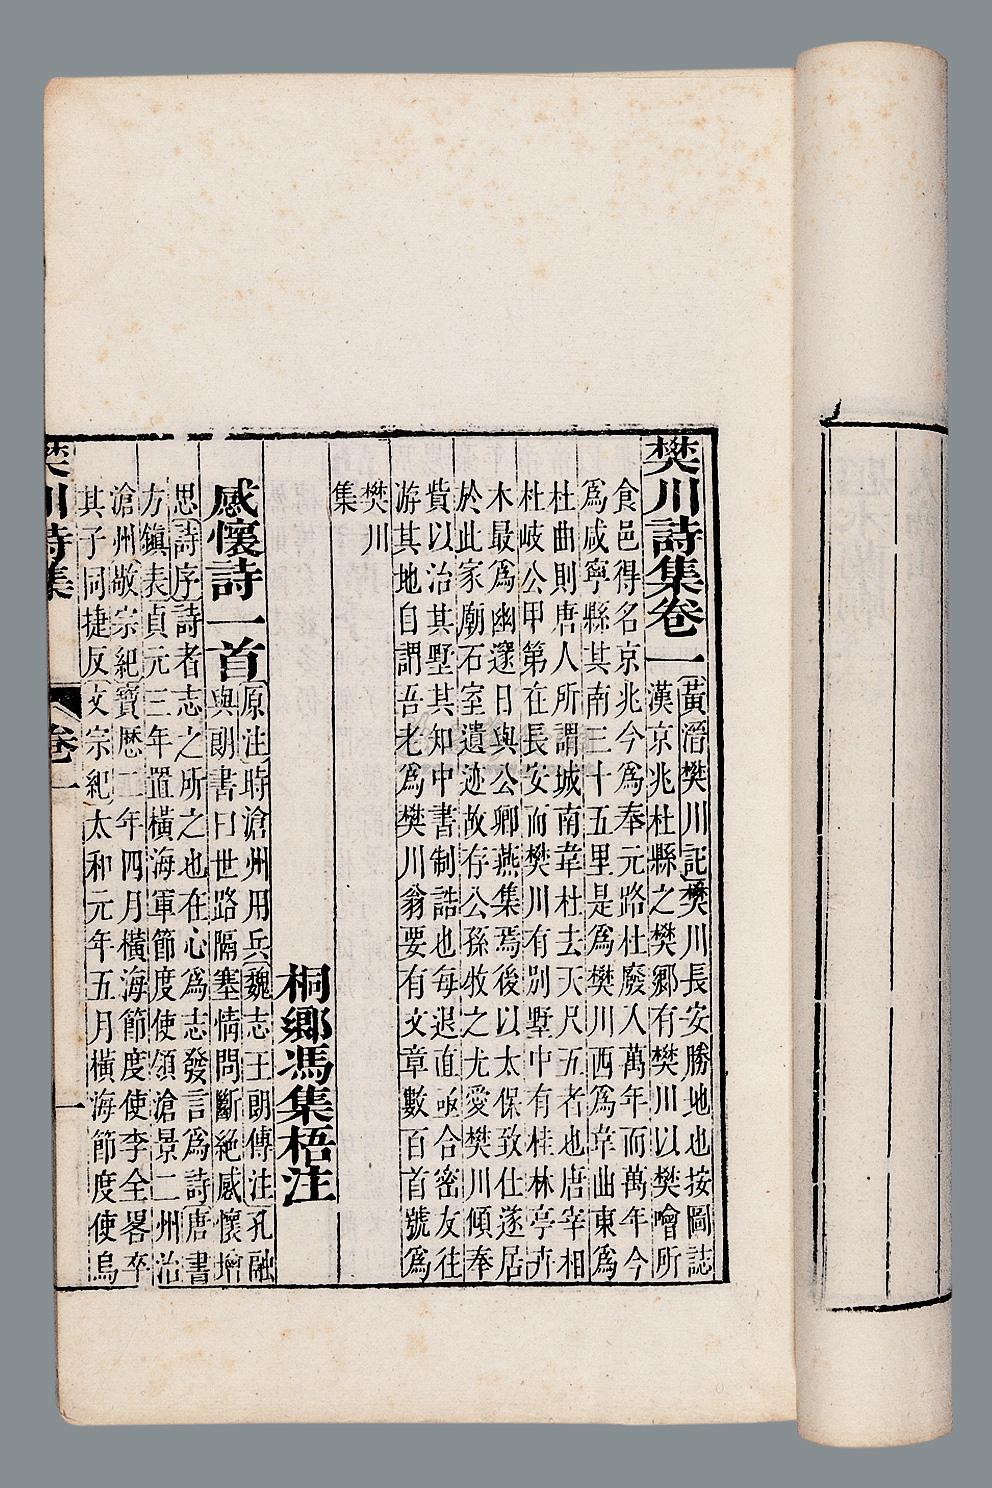 樊川詩集卷一
黃溍樊川記樊川長安勝地也按圖誌
漢京兆杜縣之樊鄉有樊川以樊噲所
食邑得名京兆今爲奉元路杜廢入萬年而萬年今
爲咸寧縣其南三十五里是爲樊川西爲韋曲東爲
杜曲則唐人所謂城南韋杜去天尺五者也唐宰相
杜岐公甲第在長安而樊川有別墅中有桂林亭卉
木最爲幽邃日與公卿燕集焉後以太保致仕遂居
於此家廟石室遺迹故存公孫牧之尤愛樊川傾奉
貲以治其墅其知中書制誥也每退直亟合密友往
游其地自謂吾老爲樊川翁要有文章數百首號爲
樊川
集
桐鄉馮集梧注
感懷詩一首
原注時滄州用兵魏志王朗傳注孔融
與朗書曰世路隔塞情問斷絕感懷增
思詩序詩者志之所之也在心爲志發言爲詩唐書
方鎭表貞元三年置橫海軍節度使領滄景二州治
滄州敬宗紀寶歷二年四月橫海節度使李全畧卒
其子同捷反文宗紀太和元年五月橫海節度使烏
樊川詩集
卷一
一